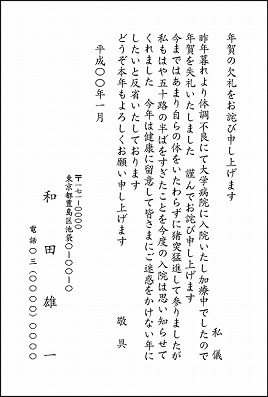 年賀の欠礼をお詫び申し上げます
私儀
昨年暮れより体調不良にて大学病院に入院いたし加療中でしたので
年賀を失礼いたしました 謹んでお詫び申し上げます
今まではあまり自らの体をいたわらずに猪突猛進して参りましたが
私もはや五十路の半ばをすぎたことを今度の入院は思い知らせて
くれました 今年は健康に留意して皆さまにご迷惑をかけない年に
したいと反省いたしております
どうぞ本年もよろしくお願い申し上げます
敬具
平成〇〇年一月
〒一七一-〇〇〇〇
東京都豊島区池袋〇-〇〇-〇
和田雄一
電話〇三(〇〇〇〇)〇〇〇〇